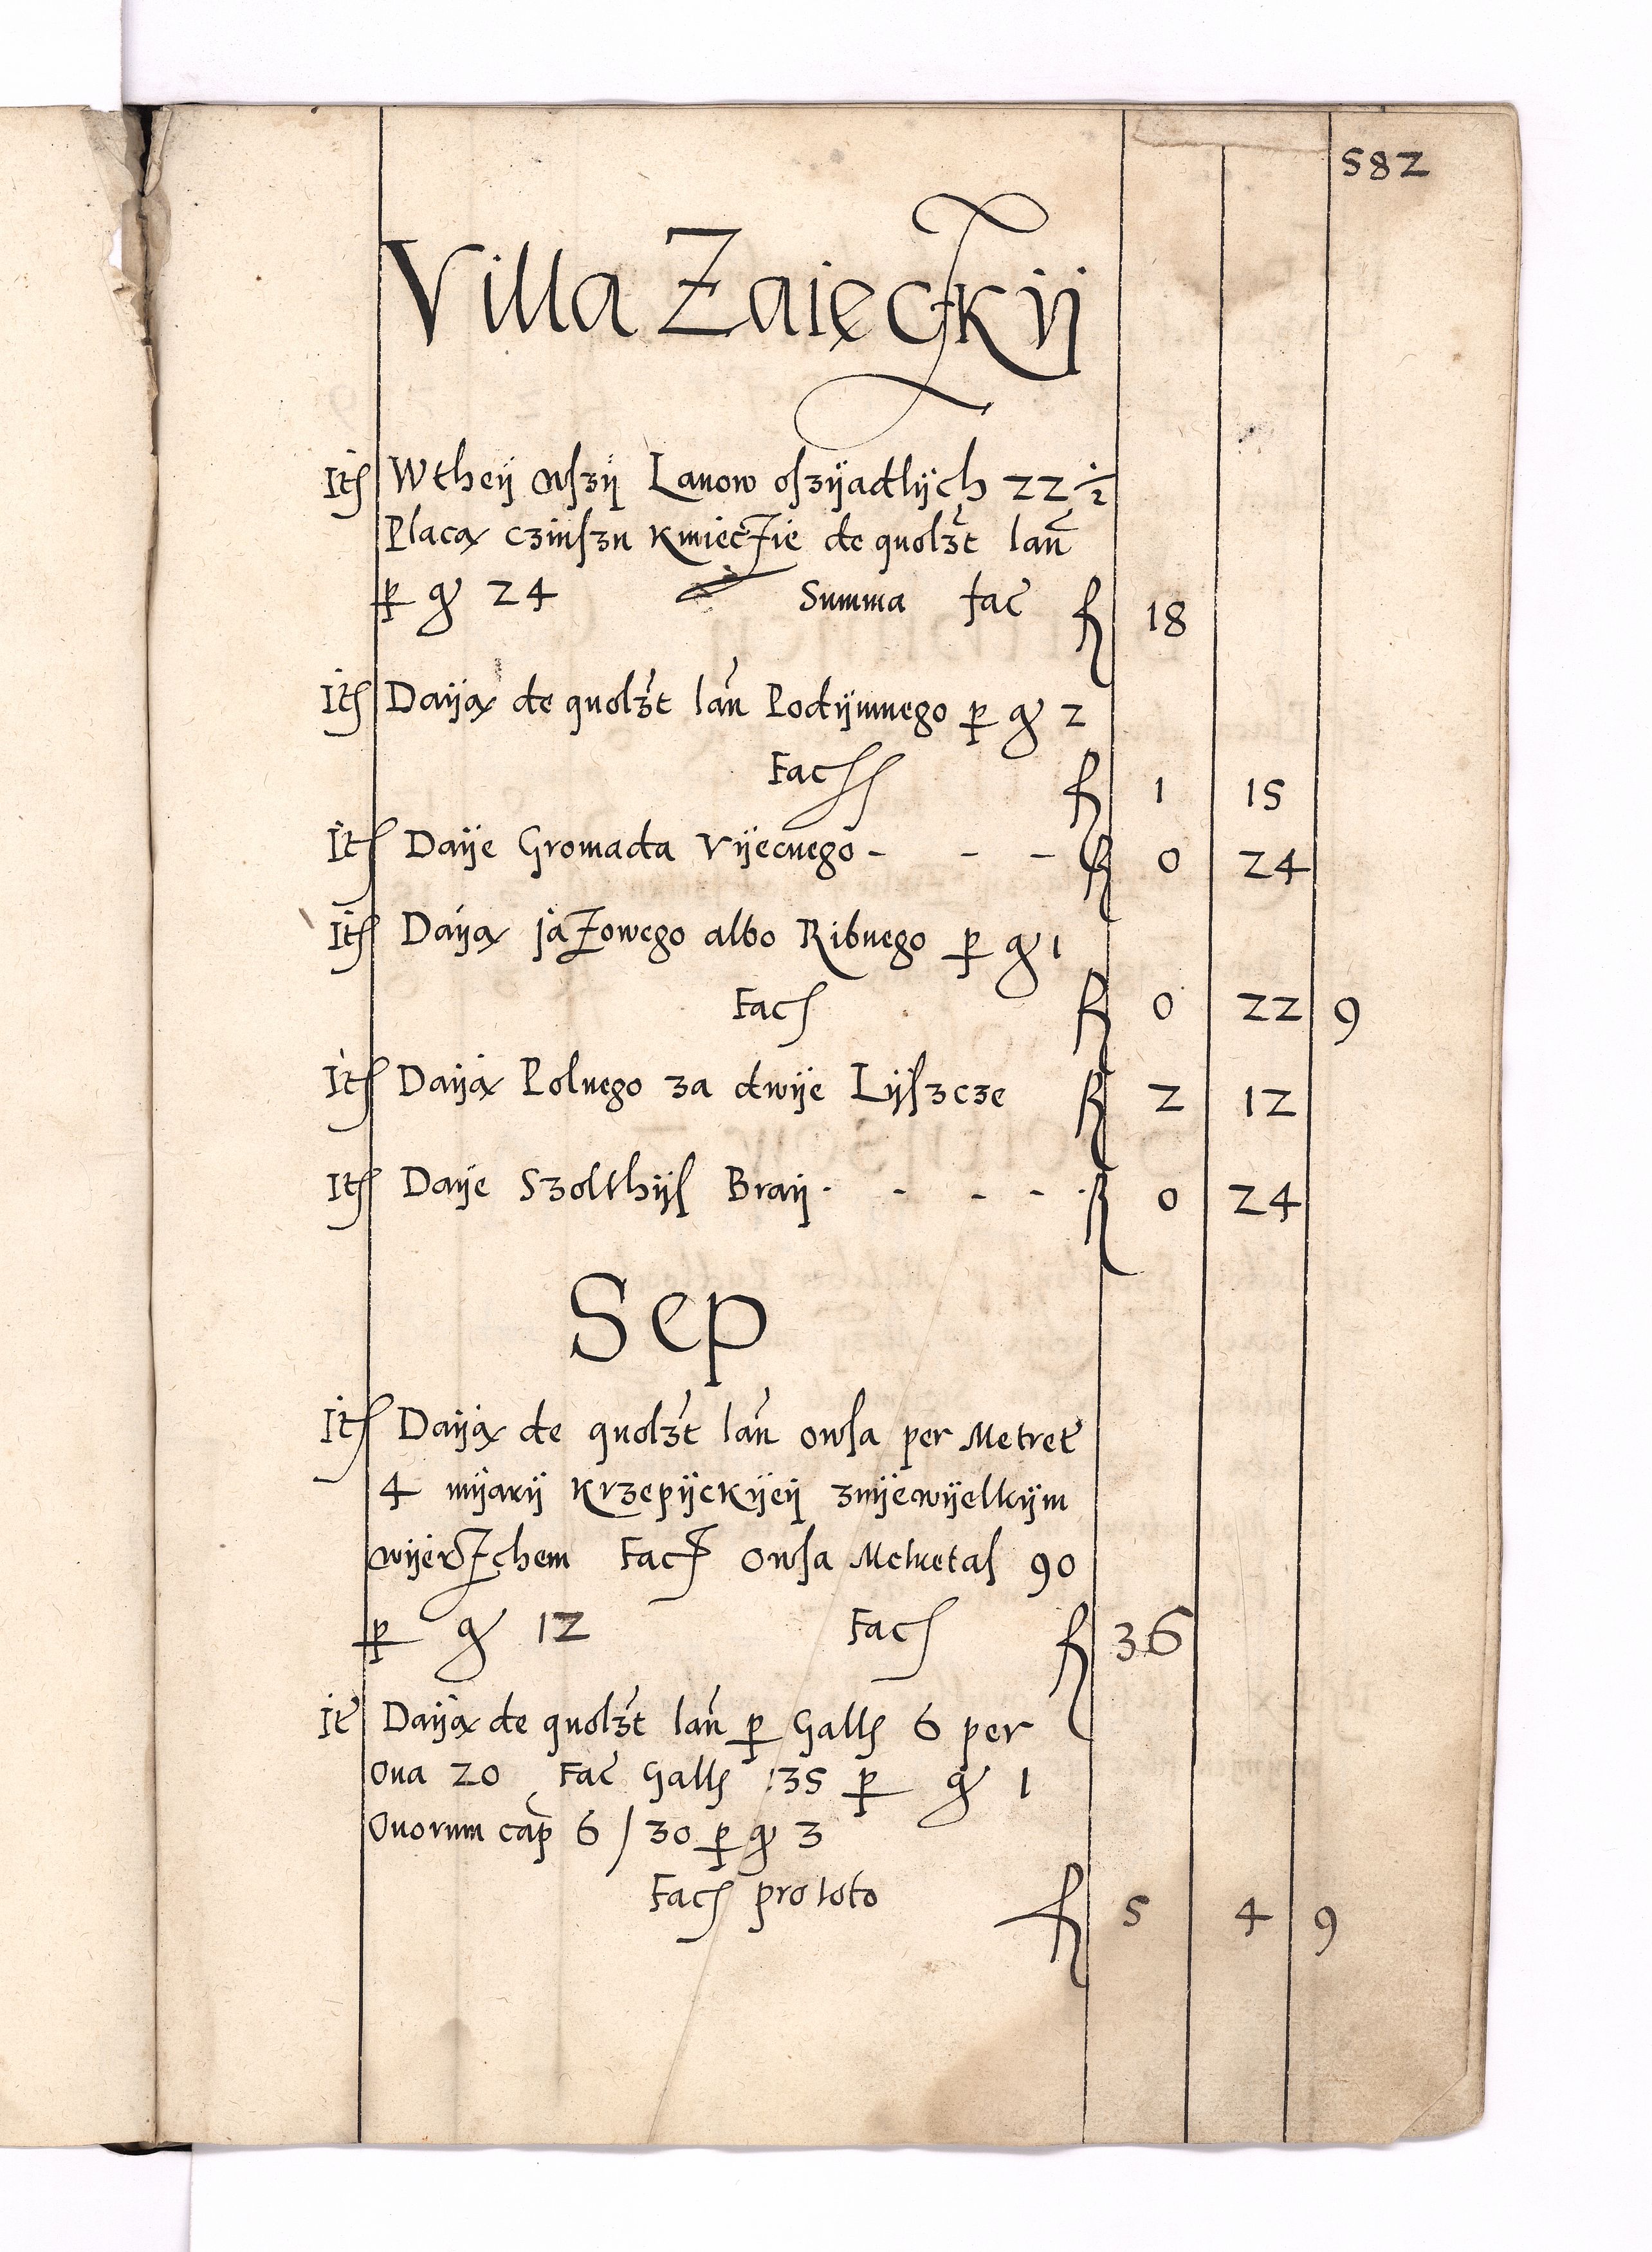 582
Villa Zaięczkij
Itꝭ Wtheij wſzij Lanow oſzijadlijch 22 ½
Placą czinſzu kmieczie de quolꝫt lan̄
ꝑ gꝛ 24 Summa fac̄ fl 18
Itꝭ Daiją de quolꝫt lan̄ Podijmnego ꝑ gꝛ 2
Facꝭ fl 1 15
Itꝭ Daije Gromada Vijecnego - - - fl 0 24
Itꝭ Daiją jazowego albo Ribnego ꝑ gꝛ 1
Facꝭ fl 0 22 9
Itꝭ Daiją Polnego za dwije Lijſzcze fl 2 12
Itꝭ Daije Szolthijſ Braij - - - fl 0 24
Sep
Itꝭ Daiją de quolꝫt lan̄ owſa per Metret̄
4 mijarij krzepijckijeij znijewijelkijm
wijerzchem Facꝭ owſa Metretaſ 90
ꝑ gꝛ 12 Facꝭ fl 36
It̄ Daiją de quolꝫt lan̄ ꝑ Gallꝭ 6 per
Oua 20 Fac̄ Gallꝭ 135 ꝑ gꝛ 1
Ouorum cap̄ 6 / 30 ꝑ gꝛ 3
Facꝭ pro toto fl 5 4 9